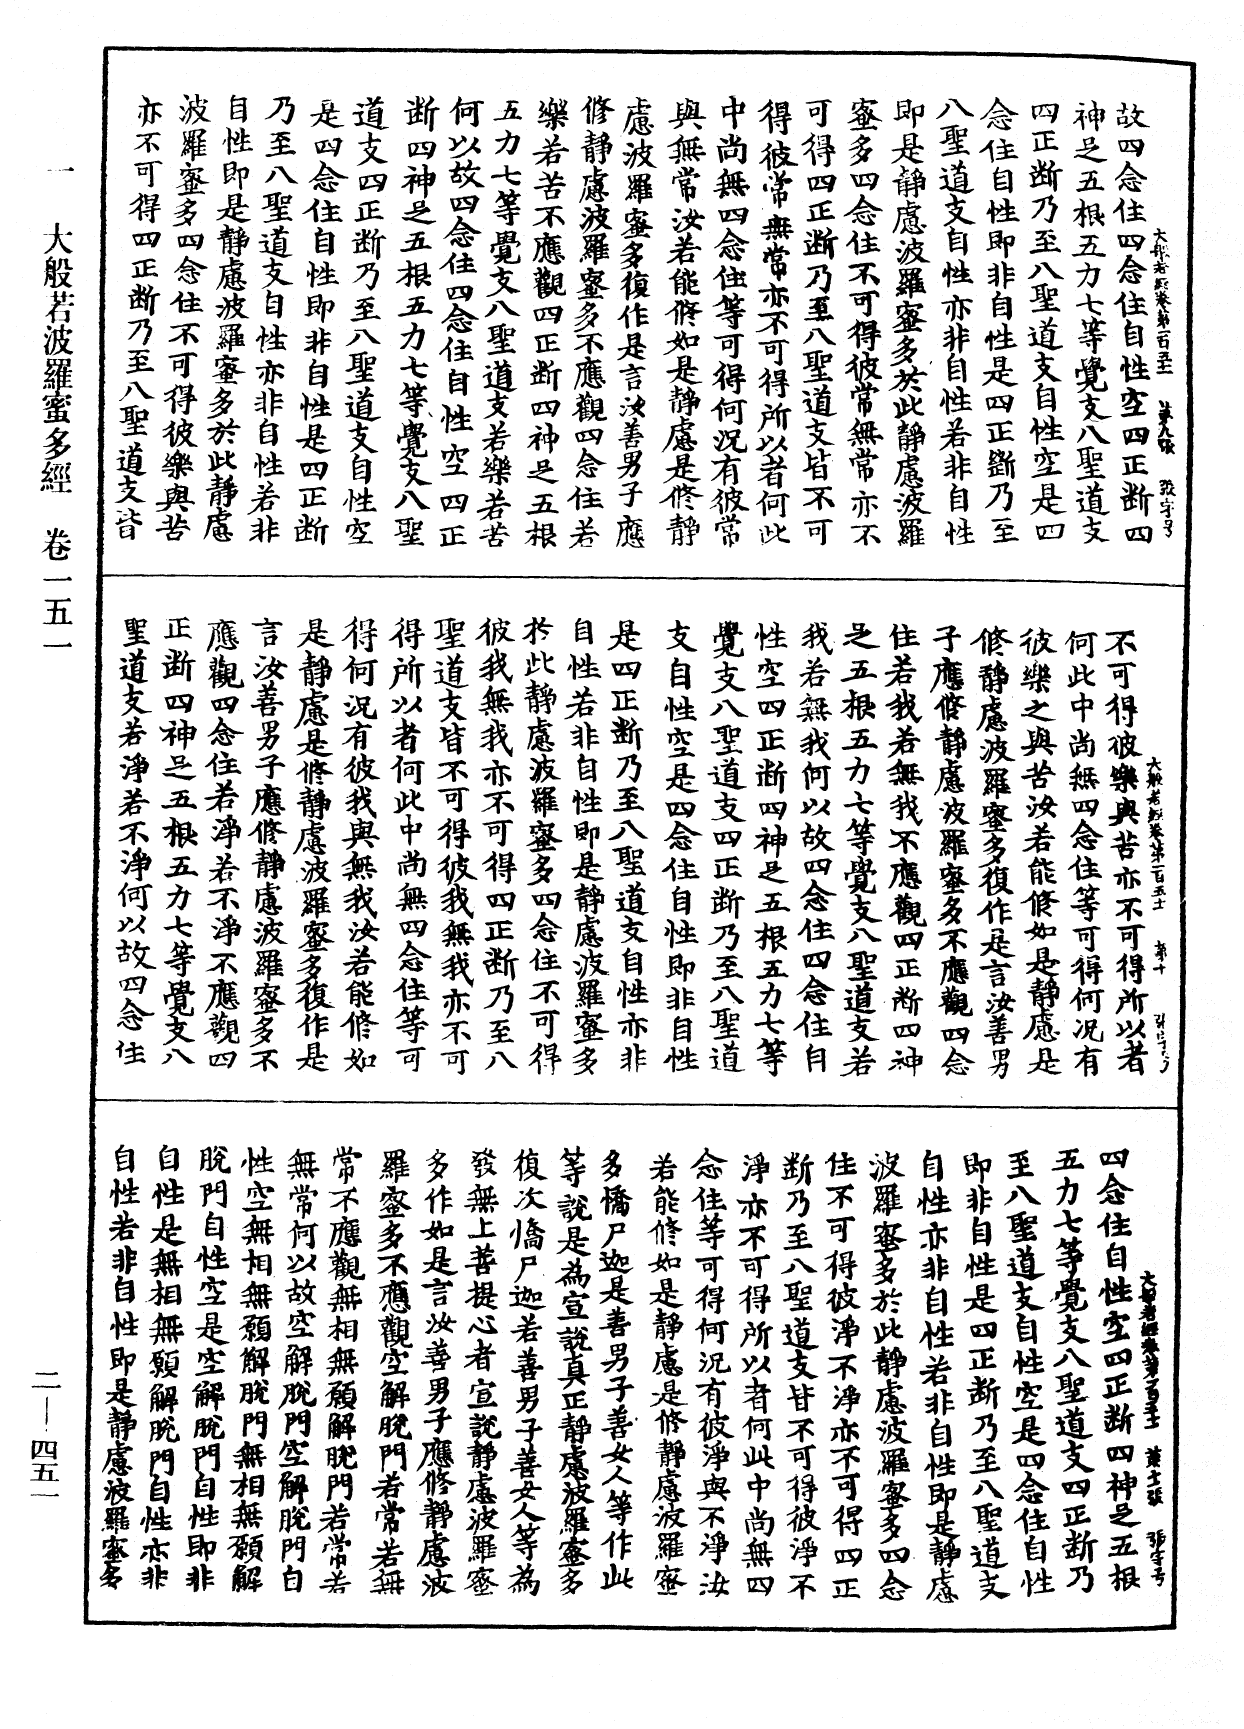 故四念住四念住自性空四正断四
神足五根五力七等覺支八聖道支
四正断乃至八聖道支自性空是四
念住自性即非自性是四正斷乃至
八聖道支自性亦非自性若非自性
即是靜慮波羅蜜多於此靜慮波羅
蜜多四念住不可得彼常無常亦不
可得四正断乃至八聖道支皆不可
得彼常無常亦不可得所以者何此
中尚無四念住等可得何況有彼常
與無常汝若能修如是靜慮是修靜
慮波羅蜜多復作是言汝善男子應
修靜慮波羅蜜多不應觀四念住若
樂若苦不應觀四正断四神足五根
五力七等覺支八聖道支若樂若苦
何以故四念住四念住自性空四正
断四神足五根五力七等覺支八聖
道支四正断乃至八聖道支自性空
是四念住自性即非自性是四正断
乃至八聖道支自性亦非自性若非
自性即是靜慮波羅蜜多於此靜慮
波羅蜜多四念住不可得彼樂與苦
亦不可得四正断乃至八聖道支皆
不可得彼樂與苦亦不可得所以者
何此中尚無四念住等可得何況有
彼樂之與苦汝若能修如是靜慮是
修靜慮波羅蜜多復作是言汝善男
子應修靜慮波羅蜜多不應觀四念
住若我若無我不應觀四正断四神
足五根五力七等覺支八聖道支若
我若無我何以故四念住四念住自
性空四正断四神足五根五力七等
覺支八聖道支四正断乃至八聖道
支自性空是四念住自性即非自性
是四正断乃至八聖道支自性亦非
自性若非自性即是靜慮波羅蜜多
於此靜慮波羅蜜多四念住不可得
彼我無我亦不可得四正断乃至八
聖道支皆不可得彼我無我亦不可
得所以者何此中尚無四念住等可
得何況有彼我與無我汝若能修如
是靜慮是修靜慮波羅蜜多復作是
言汝善男子應修靜慮波羅蜜多不
應觀四念住若淨若不淨不應觀四
正断四神足五根五力七等覺支八
聖道支若淨若不淨何以故四念住
四念住自性空四正断四神足五根
五力七等覺支八聖道支四正断乃
至八聖道支自性空是四念住自性
即非自性是四正断乃至八聖道支
自性亦非自性若非自性即是靜慮
波羅蜜多於此靜慮波羅蜜多四念
住不可得彼淨不淨亦不可得四正
断乃至八聖道支皆不可得彼淨不
淨亦不可得所以者何此中尚無四
念住等可得何況有彼淨與不淨汝
若能修如是靜慮是修靜慮波羅蜜
多憍尸迦是善男子善女人等作此
等說是為宣說真正靜慮波羅蜜多
復次憍尸迦若善男子善女人等為
發無上菩提心者宣說靜慮波羅蜜
多作如是言汝善男子應修靜慮波
羅蜜多不應觀空解脫門若常若無
常不應觀無相無願解脫門若常若
無常何以故空解脫門空解脫門自
性空無相無願解脫門無相無願解
脫門自性空是空解脫門自性即非
自性是無相無願解脫門自性亦非
自性若非自性即是靜慮波羅蜜多
大般若經卷第一百五十一 第九張
大般若經卷第一百五十一 第十
大般若經卷第一百五十一
一 大般若波羅蜜多經 卷一五一
二—四五一